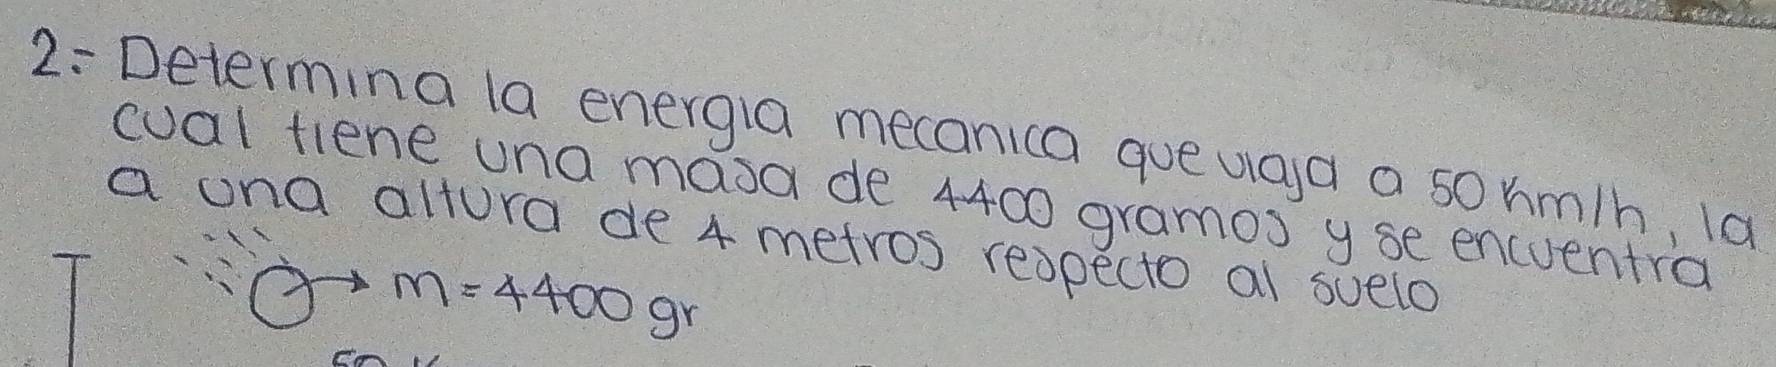 2.- Determina la energia mecanica que viaja a 50 km/h, la
cual tiene una masa de 4400 gramos y se encuentra
a una altura de 4 metros respecto al suelo
m = 4400 gr